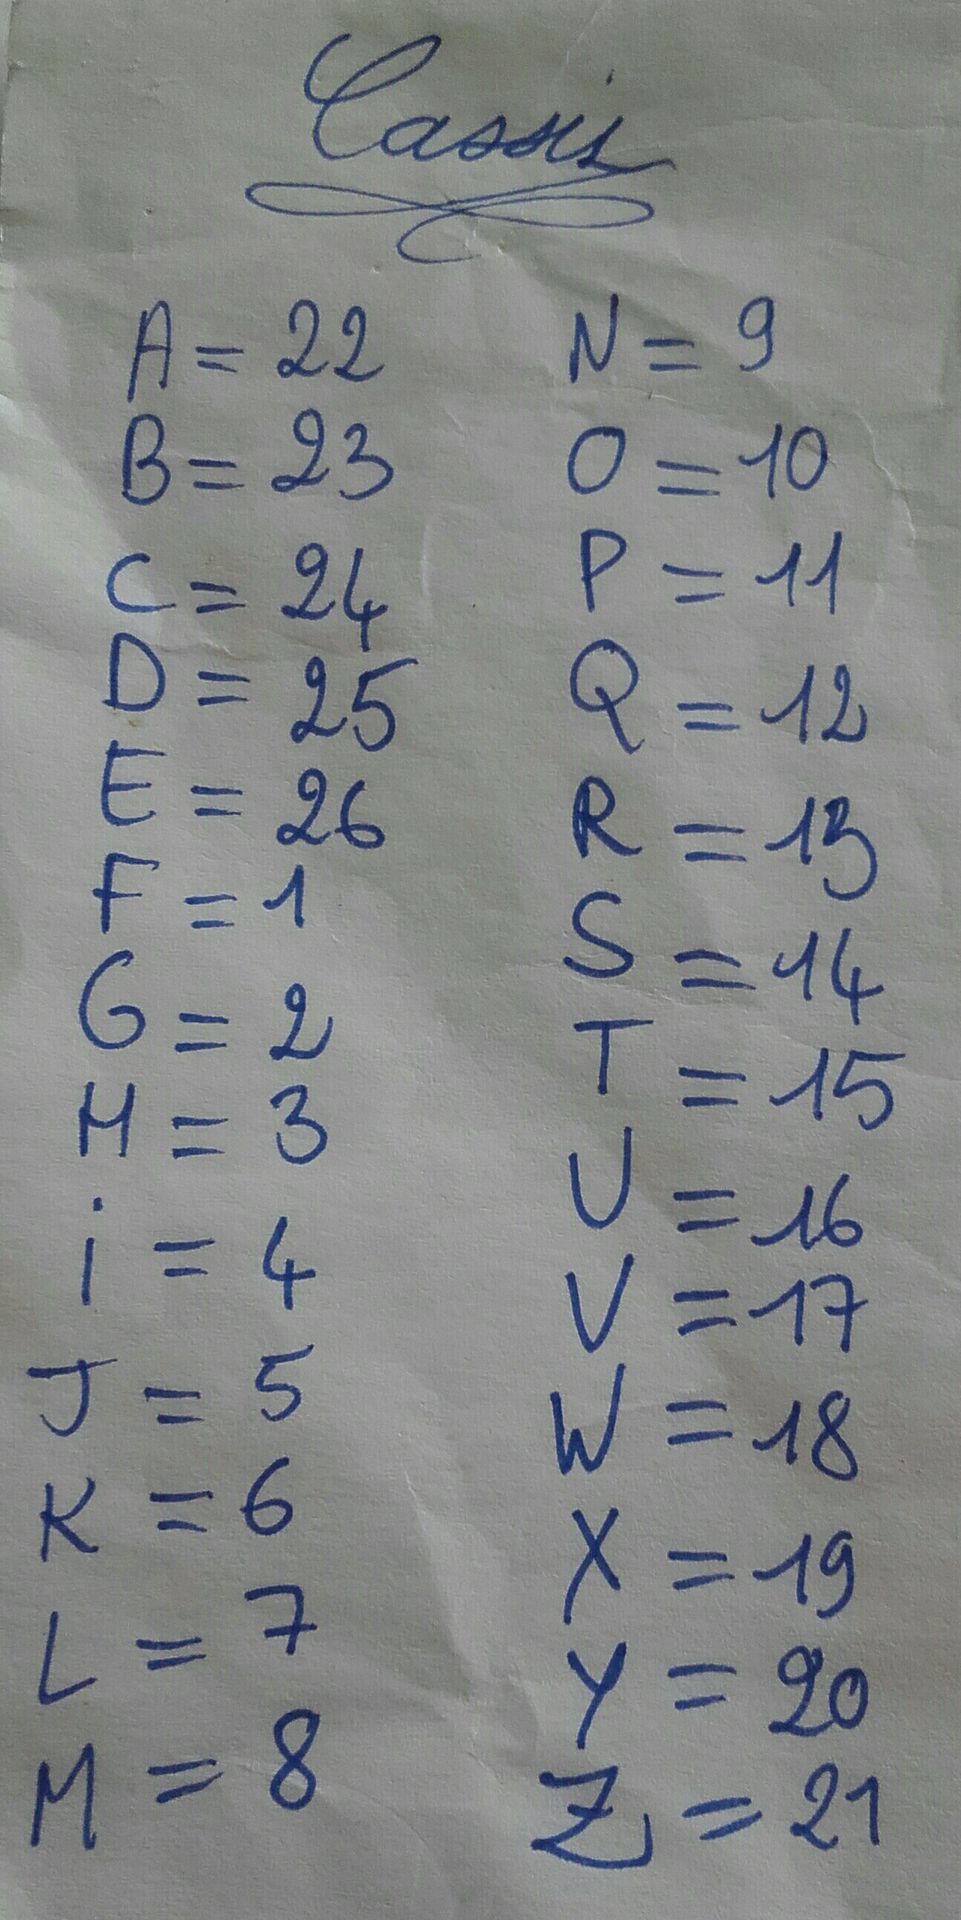 Cassis
A = 22
B = 23
C = 24
D = 25
E = 26
F = 1
G = 2
H = 3
i = 4
J = 5
K = 6
L = 7
M = 8
N = 9
O = 10
P = 11
Q = 12
R = 13
S = 14
T = 15
U = 16
V = 17
W = 18
X = 19
Y = 20
Z = 21